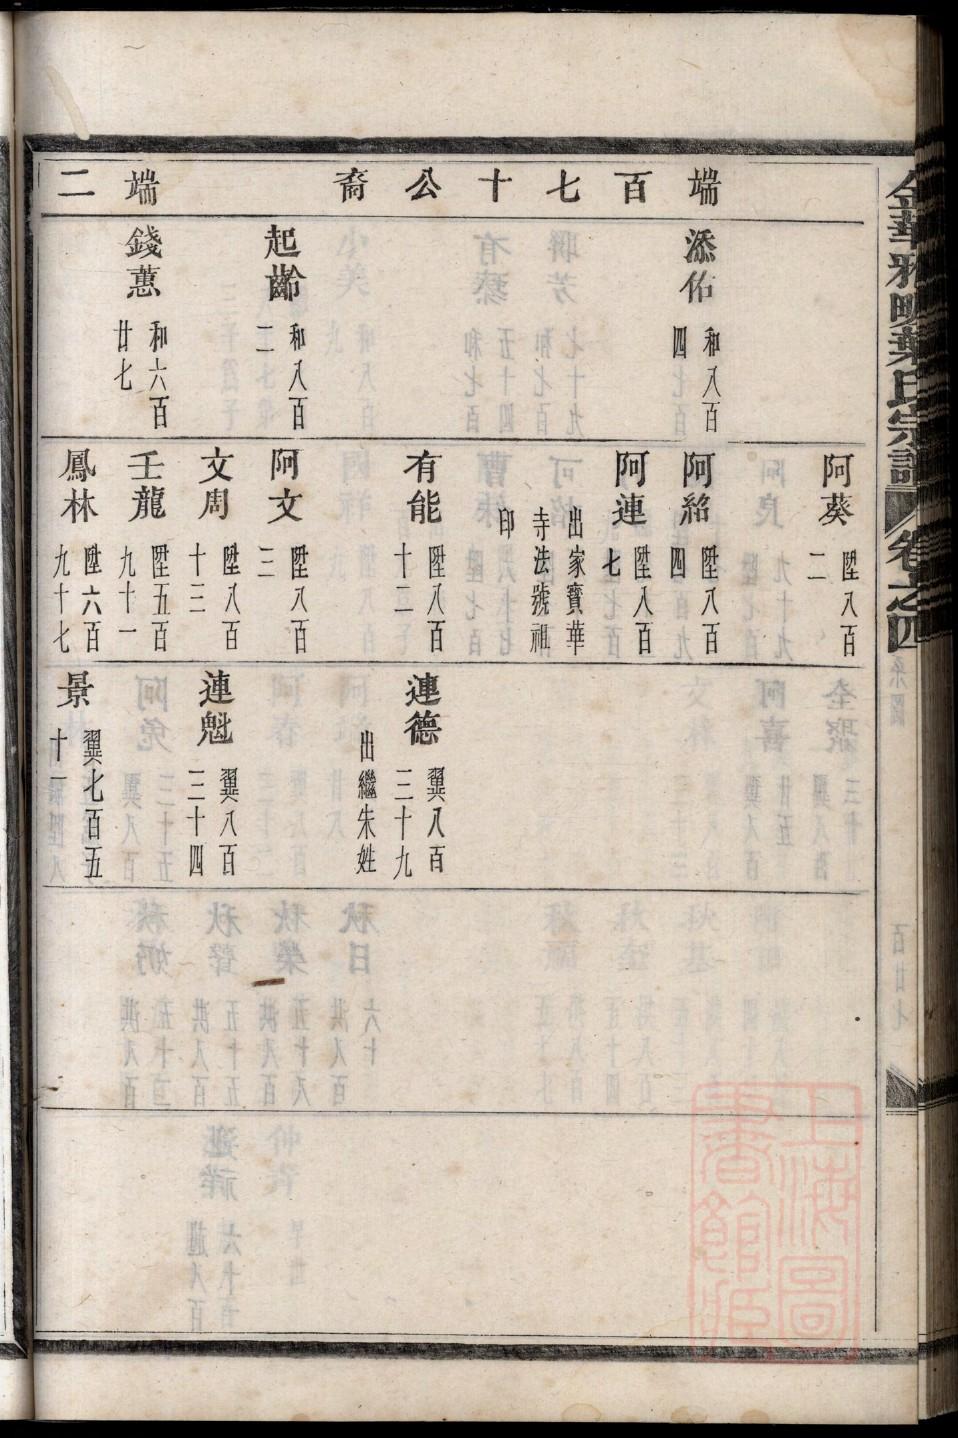 金華雅畈葉氏宗譜 卷之四
端百七十公裔 端二
添佑 和八百四
起齡 和八百二
錢蕙 和六百廿七
阿葵 陞八百二
阿紹 陞八百四
阿連 陞八百七
出家寶華寺法號祖印
有能 陞八百十二
阿文 陞八百三
文周 陞八百十三
壬龍 陞五百九十一
鳳林 陞六百九十七
連德 翼八百三十九
出繼朱姓
連魁 翼八百三十四
景 翼七百五十一
上海圖書館藏